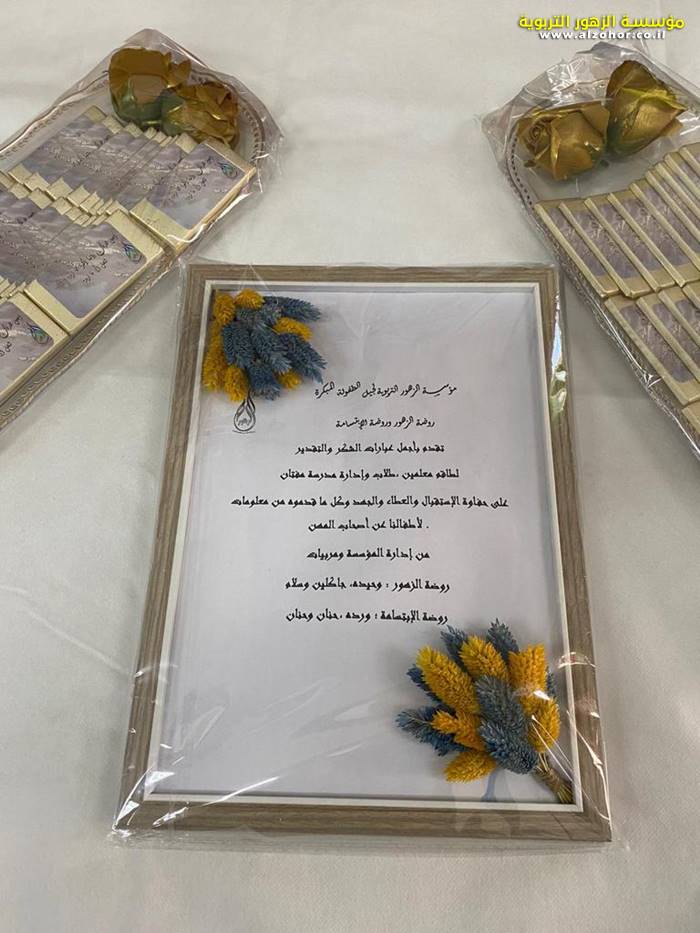 مؤسسة الزهور التربوية
www.alzohor.co.il
مؤسسة الزهور التربوية لجيل الطفولة المبكرة
روضة الزهور وروضة الإبتسامة
تقدم بأجمل عبارات الشكر والتقدير
لطاقم معلمين ،طلاب وإدارة مدرسة مفتان
على حفاوة الإستقبال والعطاء والجهد وكل ما قدموه من معلومات
لأطفالنا عن أصحاب المهن .
من إدارة المؤسسة ومربيات
روضة الزهور : وحيده، جاكلين وسلام
روضة الإبتسامة : ورده ،حنان وحنان